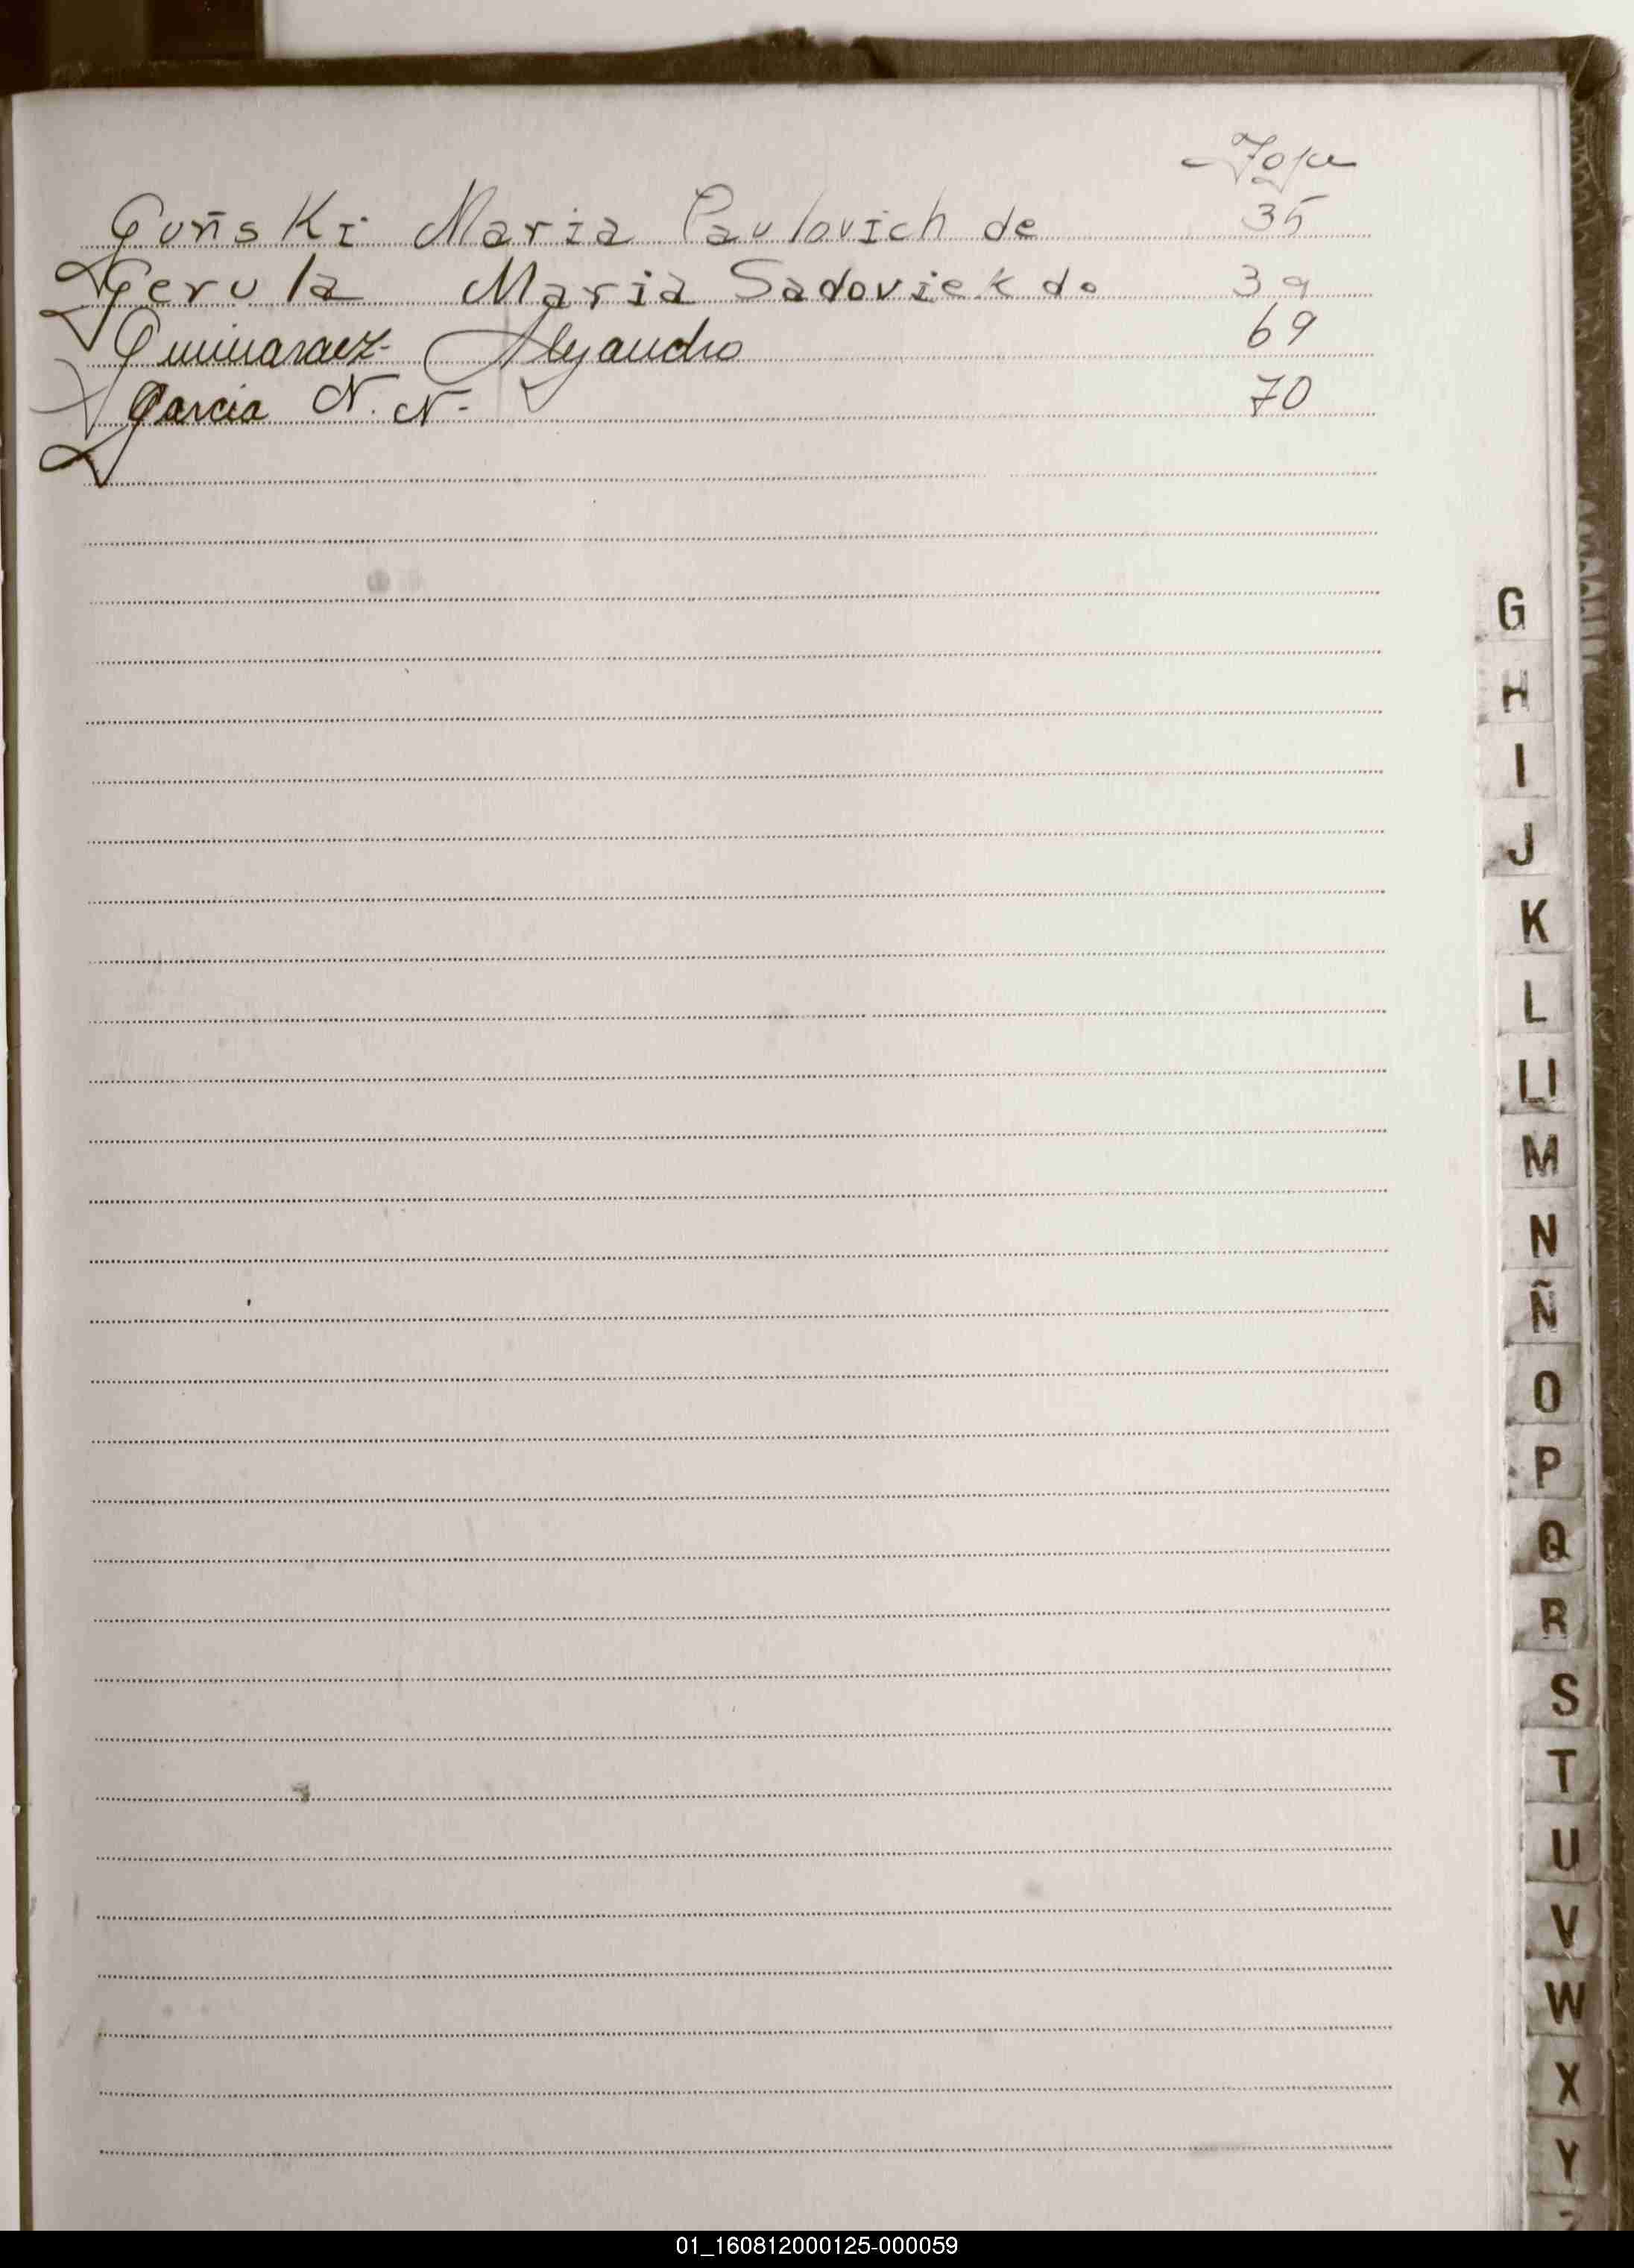 Foja
Guñski Maria Pavlovich de 35
Gerula Maria Sadoviek de 39
Guimaraez Alejandro 69
Garcia N. N- 70
G
H
I
J
K
L
Ll
M
N
Ñ
O
P
Q
R
S
T
U
V
W
X
Y
Z
01_160812000125-000059